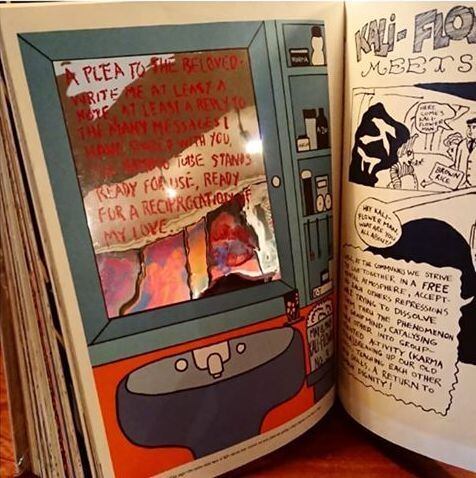 A PLEA TO THE BELOVED.
WRITE ME AT LEAST A
NOTE, AT LEAST A REPLY TO
THE MANY MESSAGES I
WITH YOU,
TUBE STANDS
READY FOR USE, READY
FOR A RECIPROCATION OF
MY LOVE
KARMA
KALI-FLO
MEETS
HERE
COMES
KALI-
FLOWER
MAN!
BROWN
RICE
HEY KALI-
FLOWER MAN,
WHAT ARE YOU
ALL ABOUT?
AT THE COMMUNES WE STRIVE
TOGETHER IN A FREE
ATMOSPHERE, ACCEPT-
EACH OTHERS REPRESSIONS
TRYING TO DISSOLVE
THRU THE PHENOMENON
GROUP-MIND, CATALYSING
OTHER INTO GROUP-
ACTIVITY (KARMA
BREAKING UP OUR OLD
TEACHING EACH OTHER
SKILLS, A RETURN TO
DIGNITY!